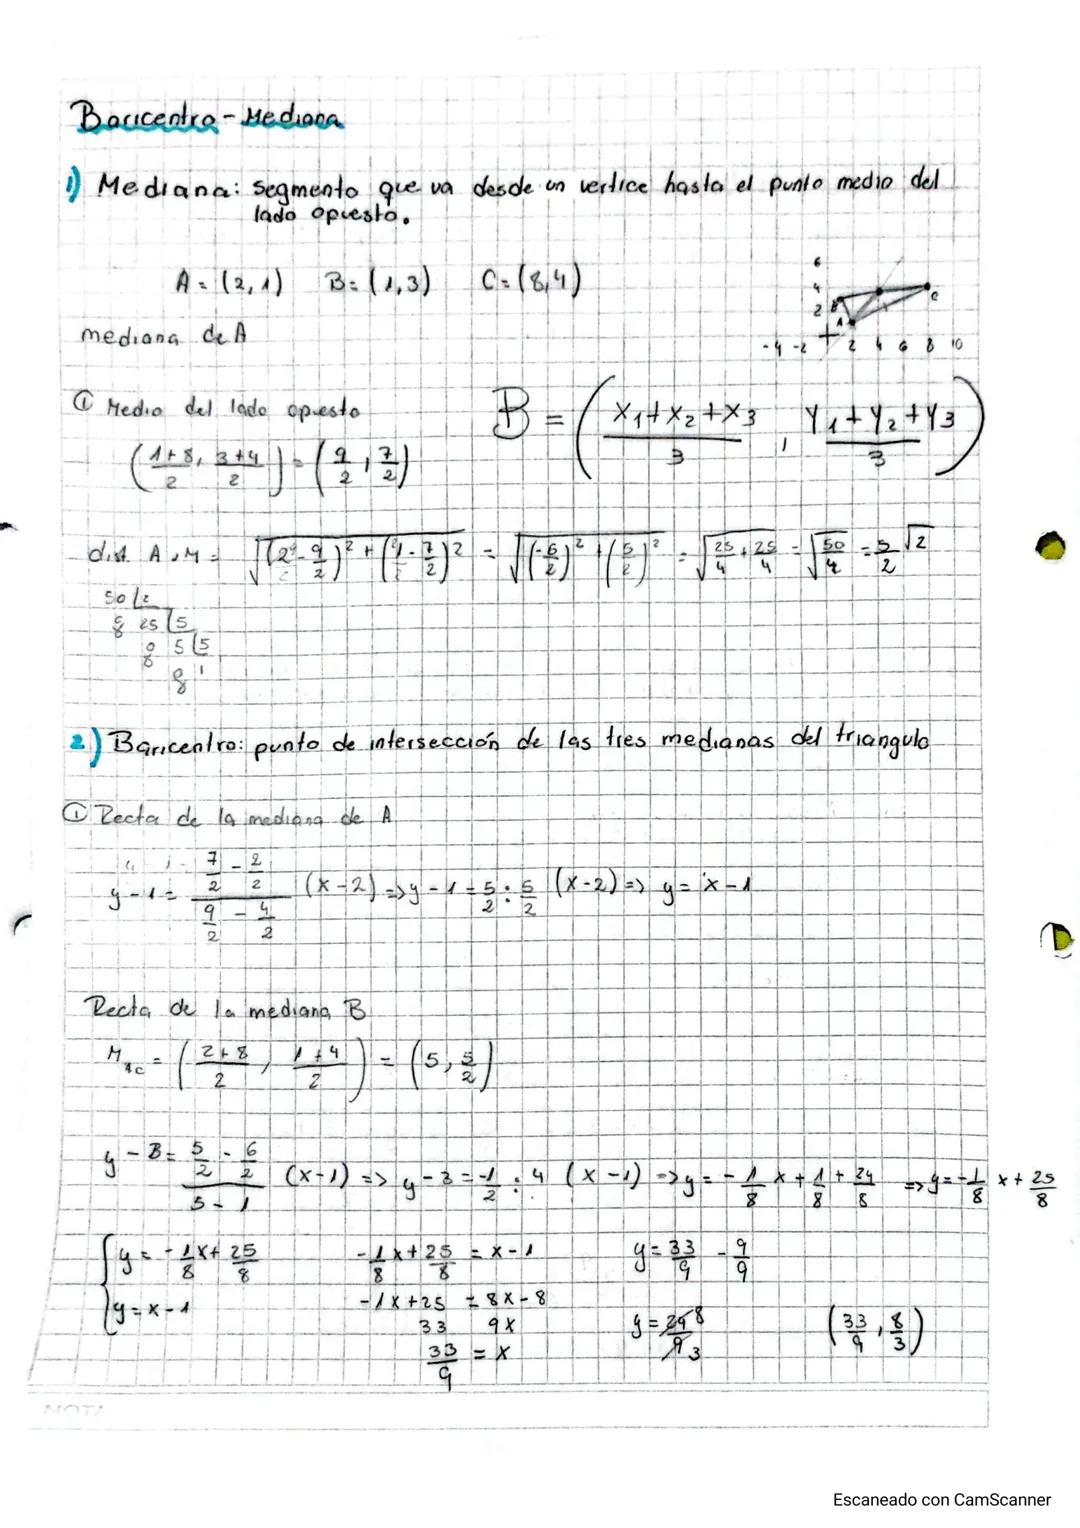 Baricentro - Mediana
1) Mediana: segmento que va desde un vertice hasta el punto medio del
lado opuesto.
A = (2,1) B = (1,3) C = (8,4)
6
4
2
B
A
C
-4 -2 2 4 6 8 10
mediana de A
① Medio del lado opuesto
B = (x₁+x₂+x₃/3, y₁+y₂+y₃/3)
(1+8/2, 3+4/2) = (9/2, 7/2)
dist. A, M = √((2-9/2)² + (1-7/2)²) = √((-5/2)² + (5/2)²) = √(25/4 + 25/4) = √(50/4) = 5/2 √2
50 | 2
0 25 | 5
0 5 | 5
0 1
2) Baricentro: punto de intersección de las tres medianas del triangulo
① Recta de la mediana de A
y - 1 = (7/2 - 2/2)/(9/2 - 4/2) (x-2) => y - 1 = 5/2 : 5/2 (x-2) => y = x - 1
Recta de la mediana B
M_AC = (2+8/2, 1+4/2) = (5, 5/2)
y - 3 = (5/2 - 6/2)/(5 - 1) (x-1) => y - 3 = -1/2 : 4 (x-1) => y = -1/8 x + 1/8 + 24/8 => y = -1/8 x + 25/8
{ y = -1/8 x + 25/8 -1/8 x + 25/8 = x - 1 y = 33/9 - 9/9
y = x - 1 -1x + 25 = 8x - 8
33 9x y = 24/9 8/3 (33/9, 8/3)
33/9 = x
NOTA
Escaneado con CamScanner